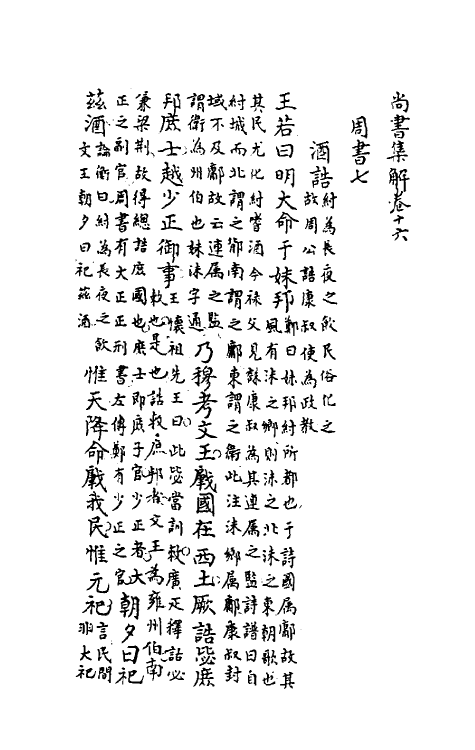 尚書集解卷十六
周書七
酒誥
紂為長夜之飲民俗化之
故周公誥康叔使為政教
王若曰明大命于妹邦
鄭曰妹邦紂所都也于詩國属鄘故其
風有沬之鄉則沬之北沬之東朝歌也
其民尤化紂嗜酒今祿父見誅康叔為其連属之監詩譜曰自
紂城而北謂之邶南謂之鄘東謂之衛此注沬鄉属鄘康叔封
域不及鄘故云連属之監
謂衛為州伯也妹沬字通
乃穆考文王肈國在西土厥誥毖庶
邦庶士越少正御事
王懷祖先王曰此毖當訓敕廣疋釋詁必
敕也是也誥敕庶邦者文王為雍州伯南
兼梁荆故得總誥庶國也庶士即庶子官少正者大
正之副官周書有大正正刑書左傳鄭有少正之官
朝夕曰祀
茲酒
論衡曰紂為長夜之飲
文王朝夕曰祀茲酒
惟天降命肈我民惟元祀
言民間
大祀